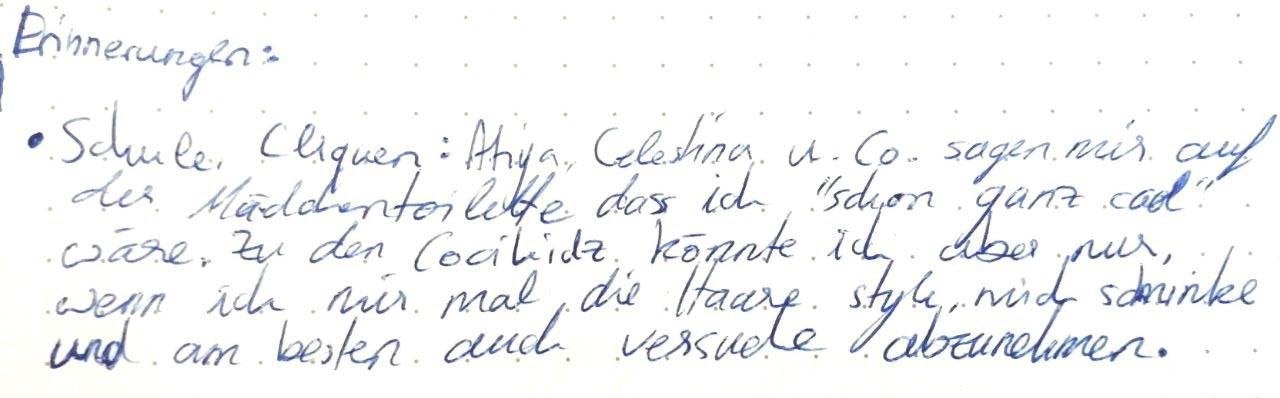 Erinnerungen:
• Schule, Cliquen: Atiya, Celestina u. Co. sagen mir auf
der Mädchentoilette dass ich "schon ganz cool"
wäre. Zu den Coolkidz könnte ich aber nur,
wenn ich mir mal die Haare style, mich schminke
und am besten auch versuche abzunehmen.